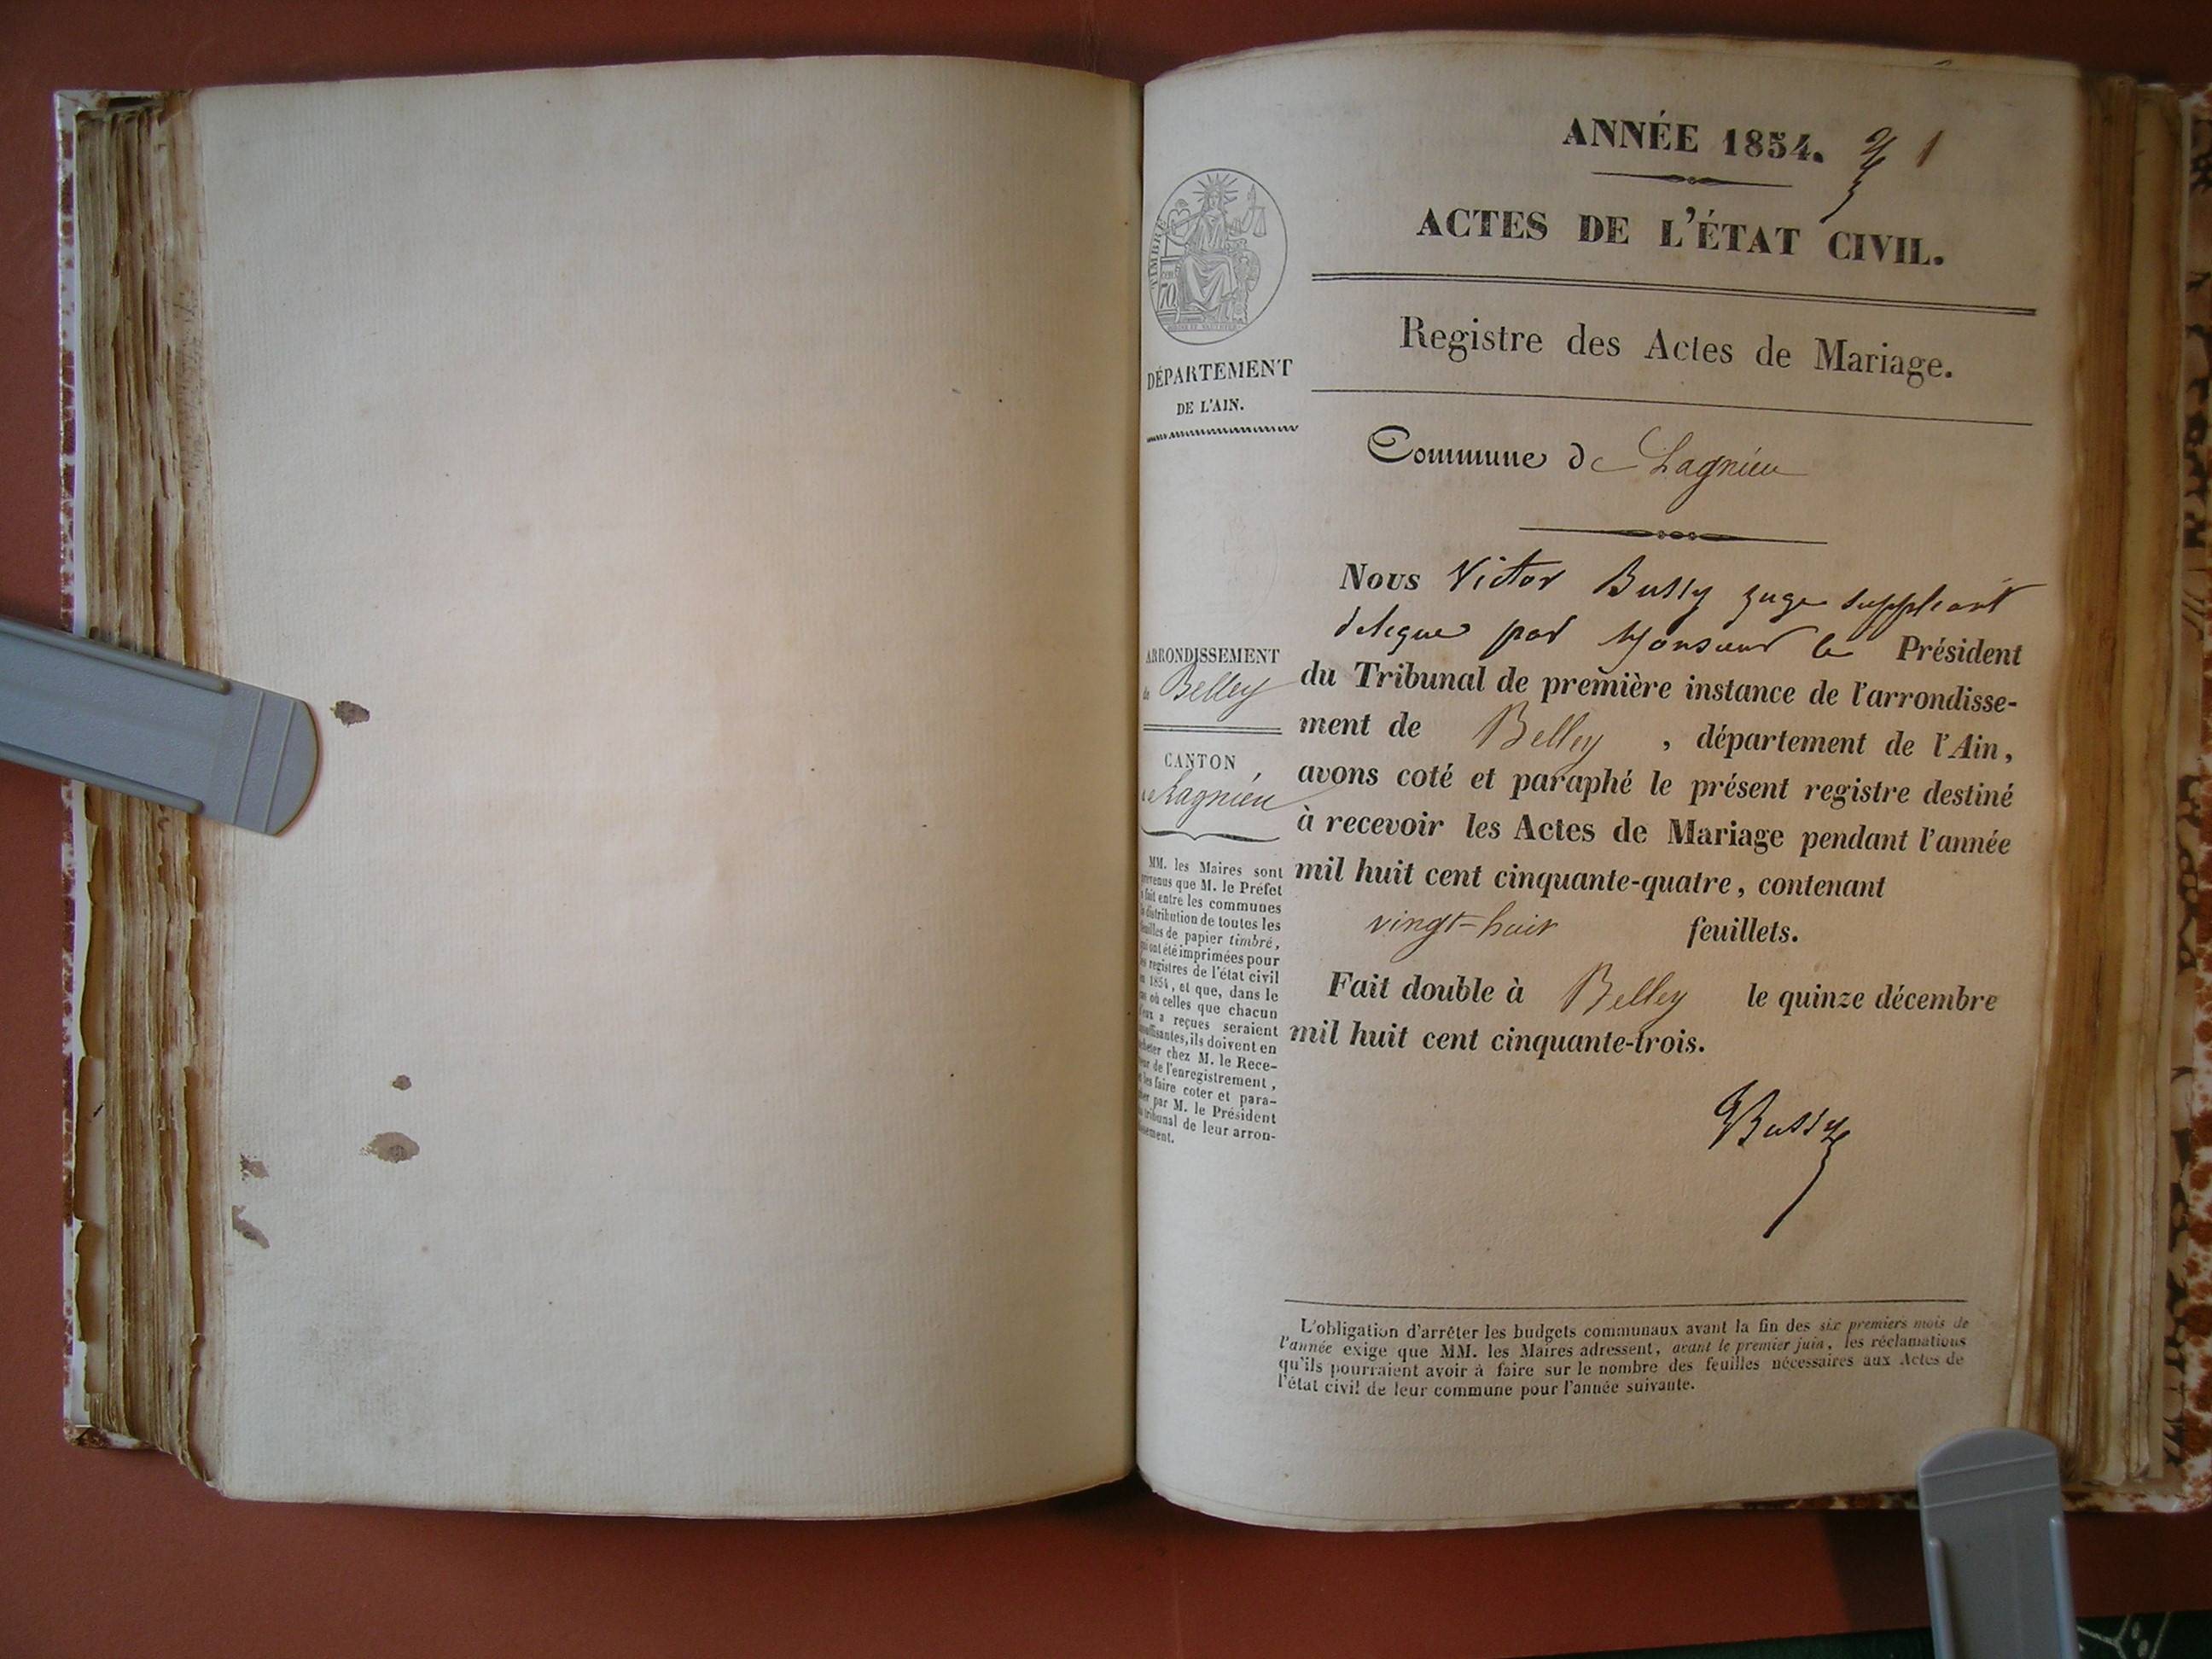 ANNÉE 1854. 1
ACTES DE L'ÉTAT CIVIL.
Registre des Actes de Mariage.
Commune de Lagnieu
TIMBRE
70
DÉPARTEMENT
DE L'AIN.
ARRONDISSEMENT
de Belley
CANTON
de Lagnieu
MM. les Maires sont
prévenus que M. le Préfet
a fait entre les communes
la distribution de toutes les
feuilles de papier timbré,
qui ont été imprimées pour
les registres de l'état civil
en 1854, et que, dans le
cas où celles que chacun
d'eux a reçues seraient
insuffisantes, ils doivent en
acheter chez M. le Rece-
veur de l'enregistrement,
et les faire coter et para-
pher par M. le Président
du tribunal de leur arron-
dissement.
Nous Victor Bussy juge suppleant
delegue par Monsieur le Président
du Tribunal de première instance de l'arrondisse-
ment de Belley, département de l'Ain,
avons coté et paraphé le présent registre destiné
à recevoir les Actes de Mariage pendant l'année
mil huit cent cinquante-quatre, contenant
vingt-huit feuillets.
Fait double à Belley le quinze décembre
mil huit cent cinquante-trois.
VBussy
L'obligation d'arrêter les budgets communaux avant la fin des six premiers mois de
l'année exige que MM. les Maires adressent, avant le premier juin, les réclamations
qu'ils pourraient avoir à faire sur le nombre des feuilles nécessaires aux Actes de
l'état civil de leur commune pour l'année suivante.